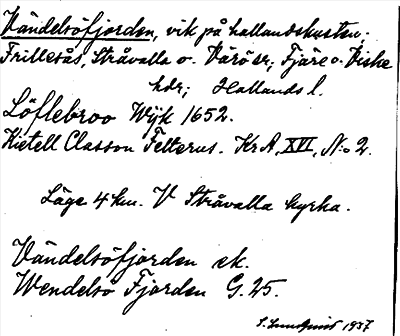 Vändelsöfjorden, vik på hallandskusten;
Frillesås, Stråvalla o. Värö sr; Fjäre o. Viske
hdr; Hallands l.
Löflebroo Wijk 1652.
Kietell Classon Felterus. KrA, XVI, N:o 2.
Läge 4 km. V Stråvalla kyrka.
Vändelsöfjorden ek.
Wendelsö Fjorden G. 25.
S. Lundquist 1937